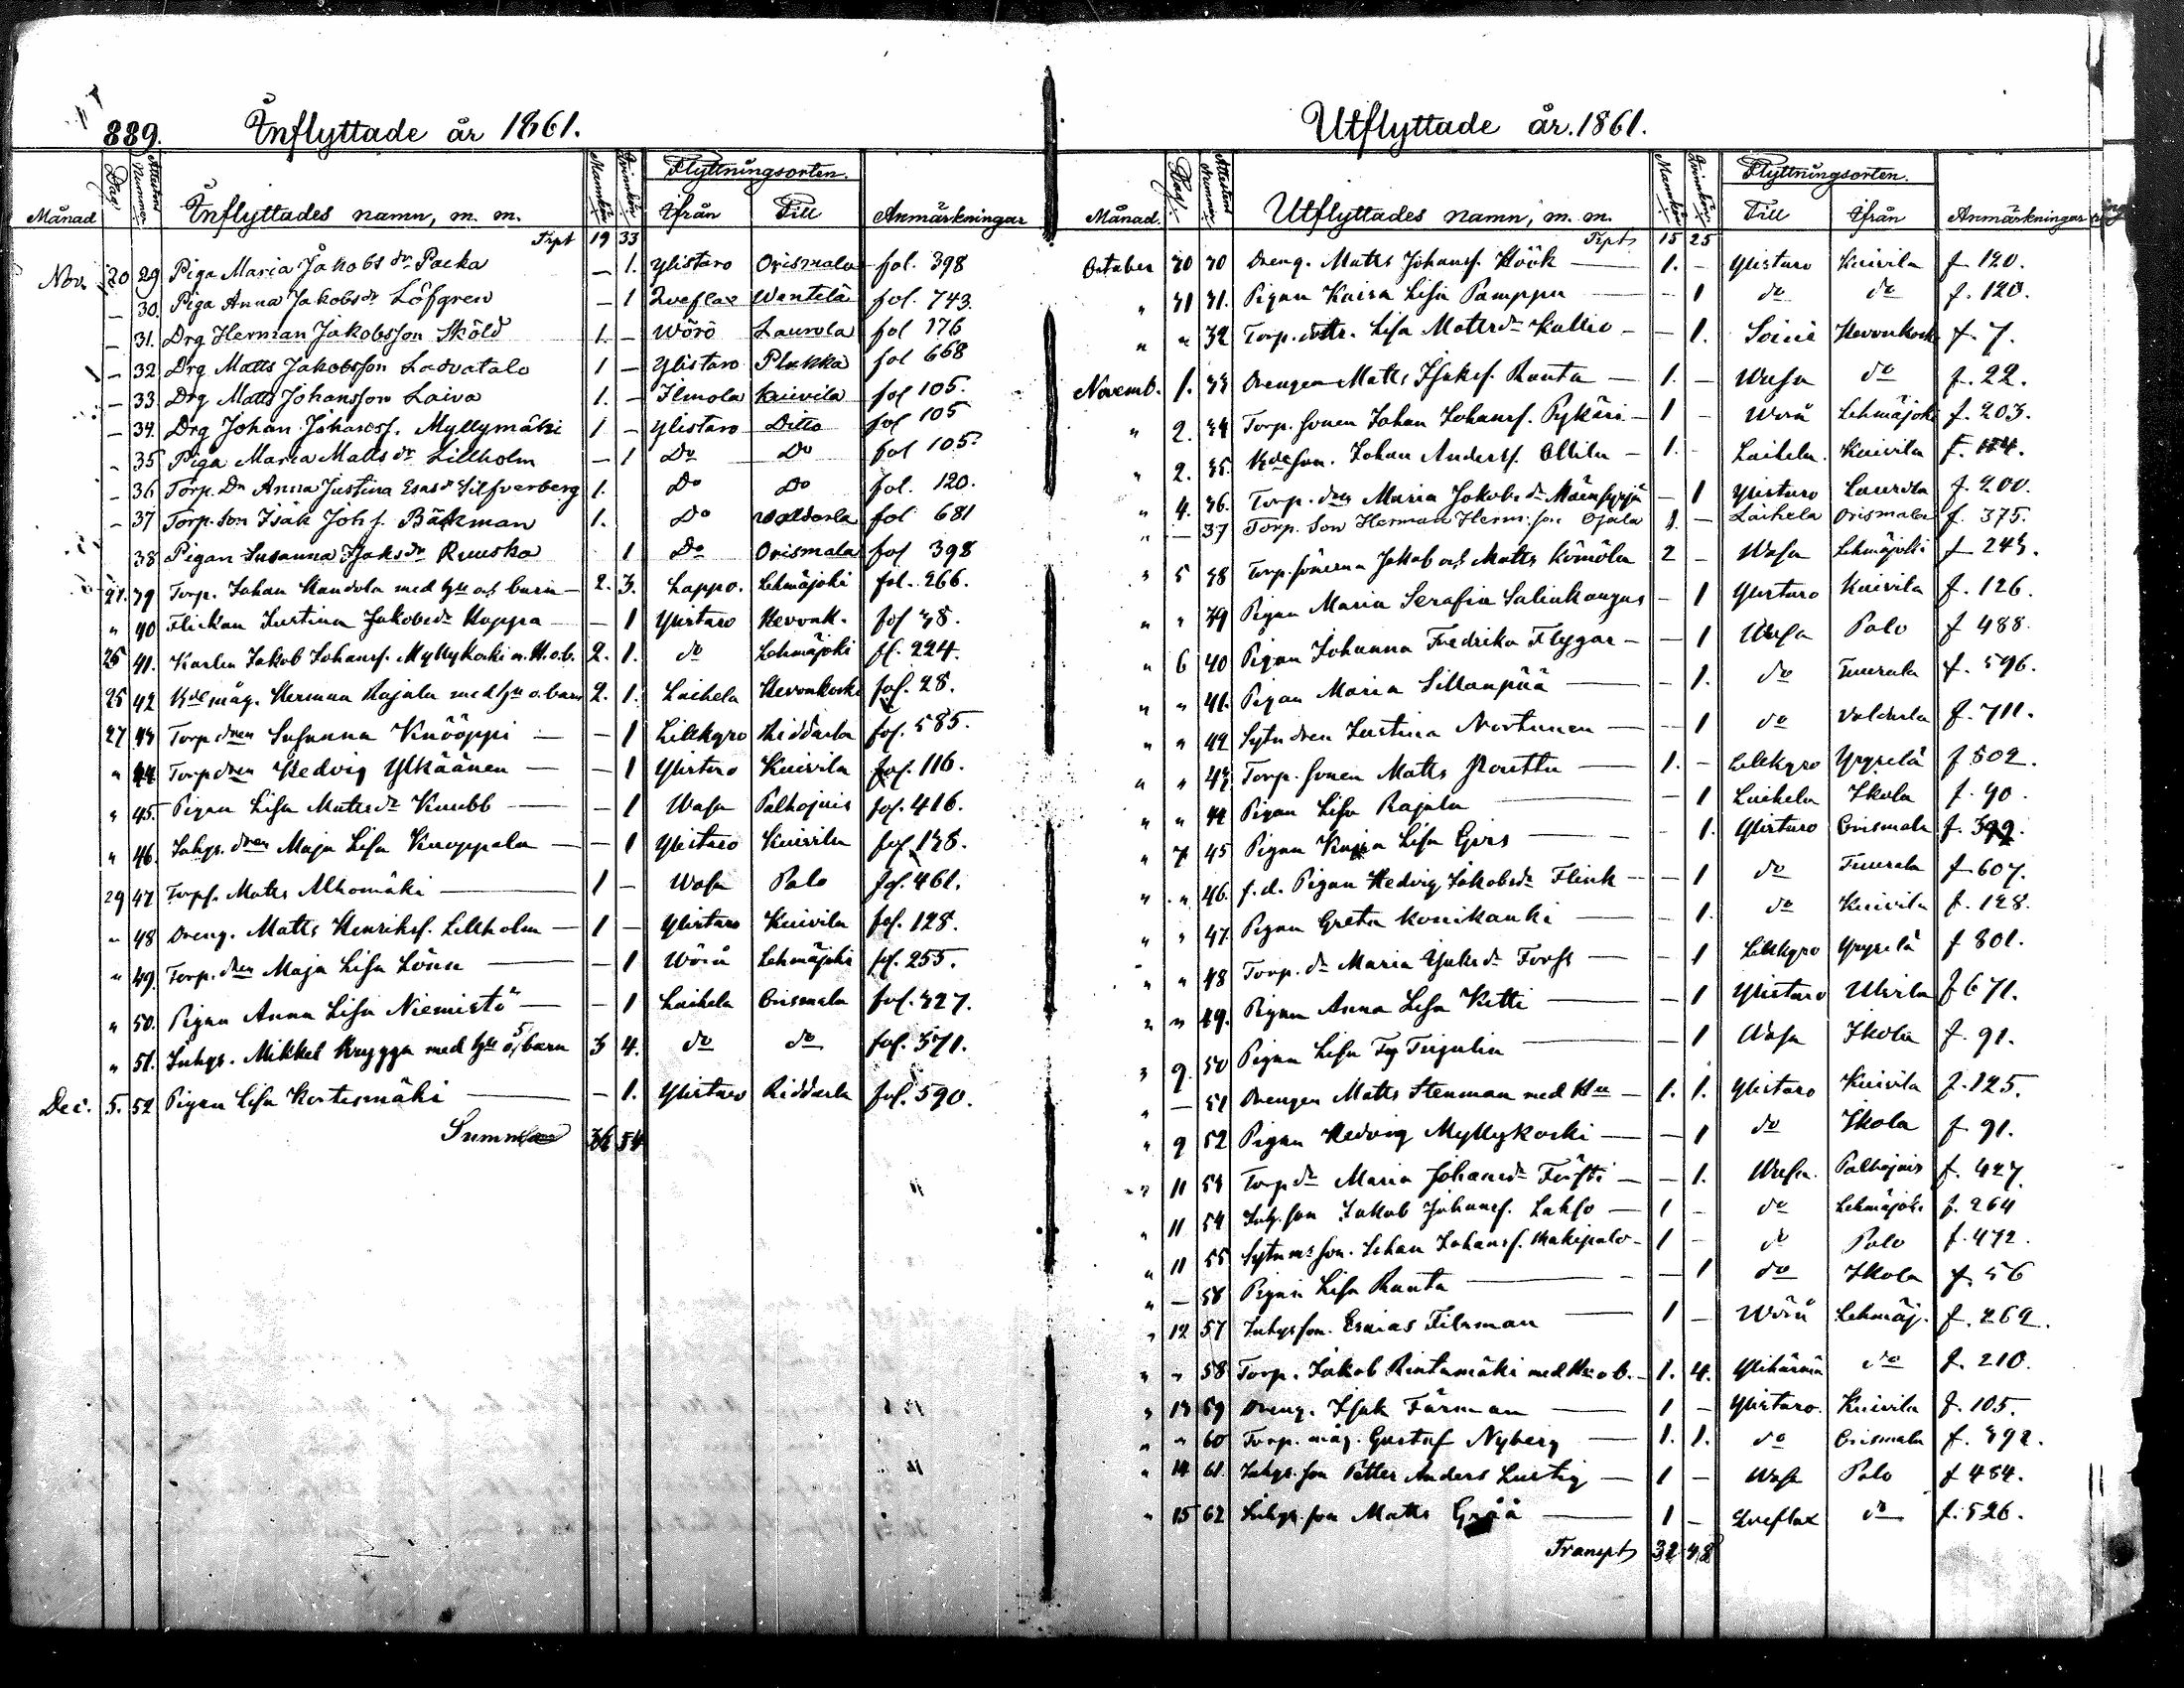 889. Inflyttade år 1861.
Månad Dag. Attestens Nummer Inflyttades namn, m. m. Mankön. Qvinkön. Flyttningsorten. Ifrån Till Anmärkningar
Trpt 19 33
Nov. 20 29 Piga Maria Jakobs dr Packa — 1. Ylistaro Orismala fol. 398
— 30. Piga Anna Jakobsdr Löfgren — 1 Qveflax Wentelä fol. 743.
— 31. Drg Herman Jakobsson Sköld 1. — Wörö Laurola fol 176
— 32 Drg Matts Jakobsson Ladvatalo 1 — Ylistaro Plukka fol 668
— 33 Drg Matts Johansson Laiva 1. — Ilmola Kuivila fol 105.
— 34. Drg Johan Johansf. Myllymäki 1 — Ylistaro Ditto fol 105
— 35 Piga Maria Matts dr Lillholm — 1 Do Do fol 105.
— 36 Torp. Dr Anna Justina Esasdr Silfverberg 1. Do Do fol. 120.
— 37 Torp. Son Isak Johs. Bäckman 1. Do Waldarla fol 681
38 Pigan Susanna Isaksdr Ruuska 1 Do Orismala fol 398
21. 39 Torp. Johan Kandola med Hu och barn — 2. 3. Lappo. Lehmäjoki fol. 266.
" 40 Flickan Justina Jakobsdr Koppa — — 1 Ylistaro Hevonk. fol 38.
25 41. Karlen Jakob Johansf. Myllykoski m. H. o. b. 2. 1. do Lehmäjoki fl. 224.
25 42 Bde måg. Herman Rajala med Hu o. barn 2. 1. Laihela Hevonkoski fol. 28.
27 43 Torp dren Susanna Knööppi — — 1 Lillkyro Riddarla fol. 585.
" 44 Torp dren Hedvig Ylkäänen — — 1 Ylistaro Kuivila fol. 116.
" 45. Pigan Lisa Mattsdr Knubb — — 1 Wasa Palhojais fol. 416.
" 46. Inhys. dren Maja Lisa Knoppala — — 1 Ylistaro Kuivila fol. 138.
29 47 Torpf. Matts Alhomäki — 1 — Wasa Palo fol. 461.
" 48 Dreng. Matts Henriksf. Lillholm — 1 — Ylistaro Kuivila fol. 128.
" 49. Torp. dren Maja Lisa Lönn — — 1 Wörå Lehmäjoki fol. 255.
" 50. Pigan Anna Lisa Niemistö — — 1 Laihela Orismala fol. 327.
" 51. Inhys. Mikkel Krygga med Hu o 5 barn 3 4. do do fol. 371.
Dec. 5. 52 Pigan Lisa Kortesmäki — — 1. Ylistaro Riddarla fol. 590.
Summa 36 54
Utflyttade år. 1861.
Månad. Dag. Attestens Nummer Utflyttades namn, m. m. Mankön. Qvinkön. Flyttningsorten. Till Ifrån Anmärkningar
Trpt 15 25
October 30 30 Dreng. Matts Johansf. Höök — 1. — Ylistaro Kuivila f. 120.
" 31 31. Pigan Kaisa Lisa Pamppu — — 1 do do f. 120.
" " 32 Torp. dottr. Lisa Mattsdr Kallio — — 1. Soini Hevonkoski f. 7.
Novemb. 1. 33 Drengen Matts Isaksf. Ranta — 1. — Wasa do f. 22.
" 2. 34 Torp. sonen Johan Johansf. Pykäri — 1 — Wörå Lehmäjoki f. 203.
" 2. 35. Bde son. Johan Andersf. Ollila — 1. — Laihela. Kuivila f. 114.
" 4. 36. Torp. dren Maria Jakobsdr Mäensyrjä — 1 Ylistaro Laurola f. 200.
" — 37 Torp. Son Herman Herm:son Ojala 1. — Laihela Orismala f. 375.
" 5 38 Torp. sönerna Jakob och Matts Kömöla 2 — Wasa Lehmäjoki f. 243.
" " 39 Pigan Maria Serafia Salinkangas — — 1 Ylistaro Kuivila f. 126.
" 6 40 Pigan Johanna Fredrika Flygar — — 1 Wasa Palo f 488.
" " 41. Pigan Maria Sillanpää — — 1. do Tuurala f. 596.
" " 42 Sytn dren Justina Nortunen — — 1 do Valdarla f. 711.
" " 43 Torp. sonen Matts Routtu — 1. — Lillkyro Ypyxelä f 502.
" " 44 Pigan Lisa Rajala — — 1 Laihela Ikola f. 90.
" 7 45 Pigan Kaisa Lisa Girs — — 1. Ylistaro Orismala f. 392.
" " 46. f. d. Pigan Hedvig Jakobsdr Flink — — 1 do Tuurala f. 607.
" " 47. Pigan Greta Konikanki — — 1. do Kuivila f. 128.
" " 48 Torp. dr Maria Isaksdr Forss — — 1 Lillkyro Ypyxelä f 801.
" " 49. Pigan Anna Lisa Kitti — — 1 Ylistaro Ulvila f 671.
" 9. 50 Pigan Lisa Tujulin — — 1 Wasa Ikola f. 91.
" — 51 Drengen Matts Stenman med Hu — 1. 1. Ylistaro Kuivila f. 125.
" 9 52 Pigan Hedvig Myllykoski — — 1 do Ikola f. 91.
" 11 53 Torp dr Maria Johansdr Försti — — 1. Wasa. Palhojais f. 427.
" 11 54 Inh. son Jakob Johansf. Lakso — 1 — do Lehmäjoki f. 264
" 11 55 Sytnms son. Johan Johansf. Makipalo — 1 — do Palo f. 472.
" — 56 Pigan Lisa Ranta — — 1 do Ikola f. 56
" 12 57 Inhys son. Esaias Filnman — 1 — Wörå Lehmäj. f. 262.
" " 58 Torp. Jakob Rintamäki med Hu o b. — 1. 4. Ylihärmä do f. 210.
" 13 59 Dreng. Isak Färman — 1 — Ylistaro. Kuivila f. 105.
" " 60 Torp. måg. Gustaf Nyberg — 1. 1. do Orismala f. 392.
" 14 61. Inhys. son Petter Anders Lustig — 1 — Wasa Palo f 484.
" 15 62 Inhys. son Matts Gråå — 1 — Qveflax do f. 526.
Transpt 32 48